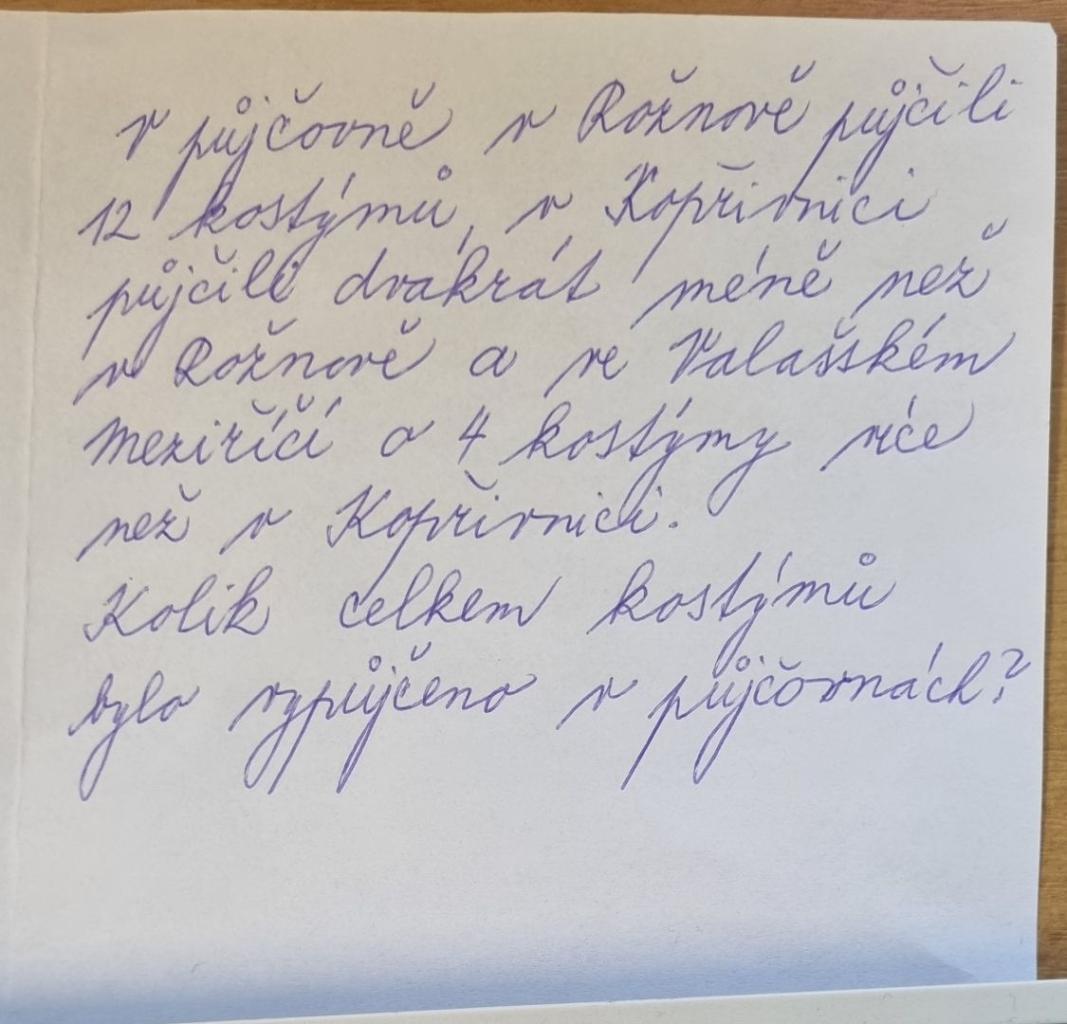 V půjčovně v Rožnově půjčili
12 kostýmů, v Kopřivnici
půjčili dvakrát méně než
v Rožnově a ve Valašském
Meziříčí o 4 kostýmy více
než v Kopřivnici.
Kolik celkem kostýmů
bylo vypůjčeno v půjčovnách?